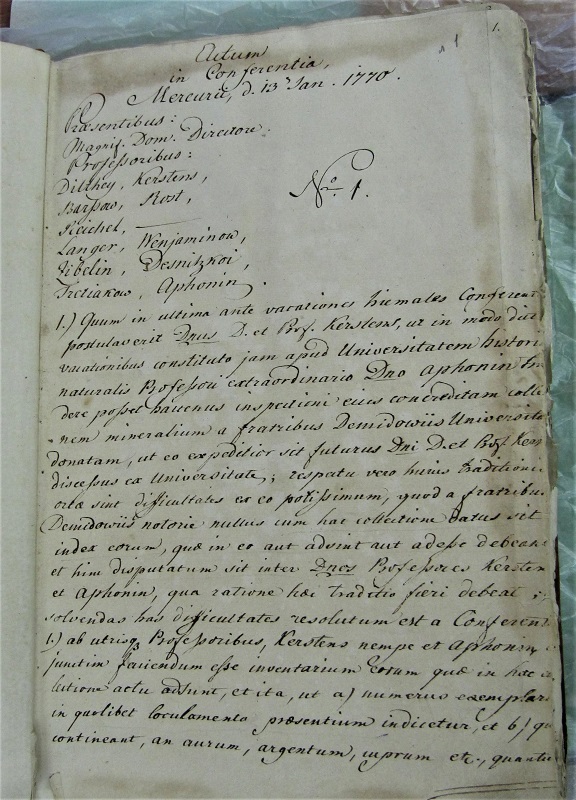 1.
Actum
in Conferentia,
Mercurii, d. 13 Jan. 1770.
Præsentibus:
Magnif. Dom. Directore.
Professoribus:
Dilthey, Kerstens,
Barssow, Rost,
Reichel,
Langer, Wenjaminow,
Sibelin, Desnitzkoi,
Tretiakow, Aphonin.
No. 1.
1.) Quum in ultima ante vacationes hiemales Conferent
postulaverit Dnus D. et Prof. Kerstens, ut in modo dict
vacationibus constituto jam apud Universitatem histori
naturalis Professori extraordinario Dno Aphonin tra
dere posset hactenus inspectioni ejus concreditam colle
nem mineralium a fratribus Demidowiis Universita
donatam, ut eo expeditior sit futurus Dni D. et Prof. Kers
discessus ex Universitate; respectu vero hujus traditioni
ortæ sint difficultates ex eo potissimum, quod a fratribus
Demidowiis notorie nullus cum hac collectione datus sit
index eorum, quæ in eo aut adsint aut adesse debean
et hinc disputatum sit inter Dnos Professores Kersten
et Aphonin, qua ratione hæc traditio fieri debeat;
solvendas has difficultates resolutum est a Conferent
1.) ab utrisq Professoribus, Kerstens nempe et Aphonin
junctim faciendum esse inventarium eorum quæ in hac
lectione actu adsunt, et ita, ut a) numerus exemplar
in quolibet loculamento præsentium indicetur, et b) qu
contineant, an aurum, argentum, cuprum etc., quantu